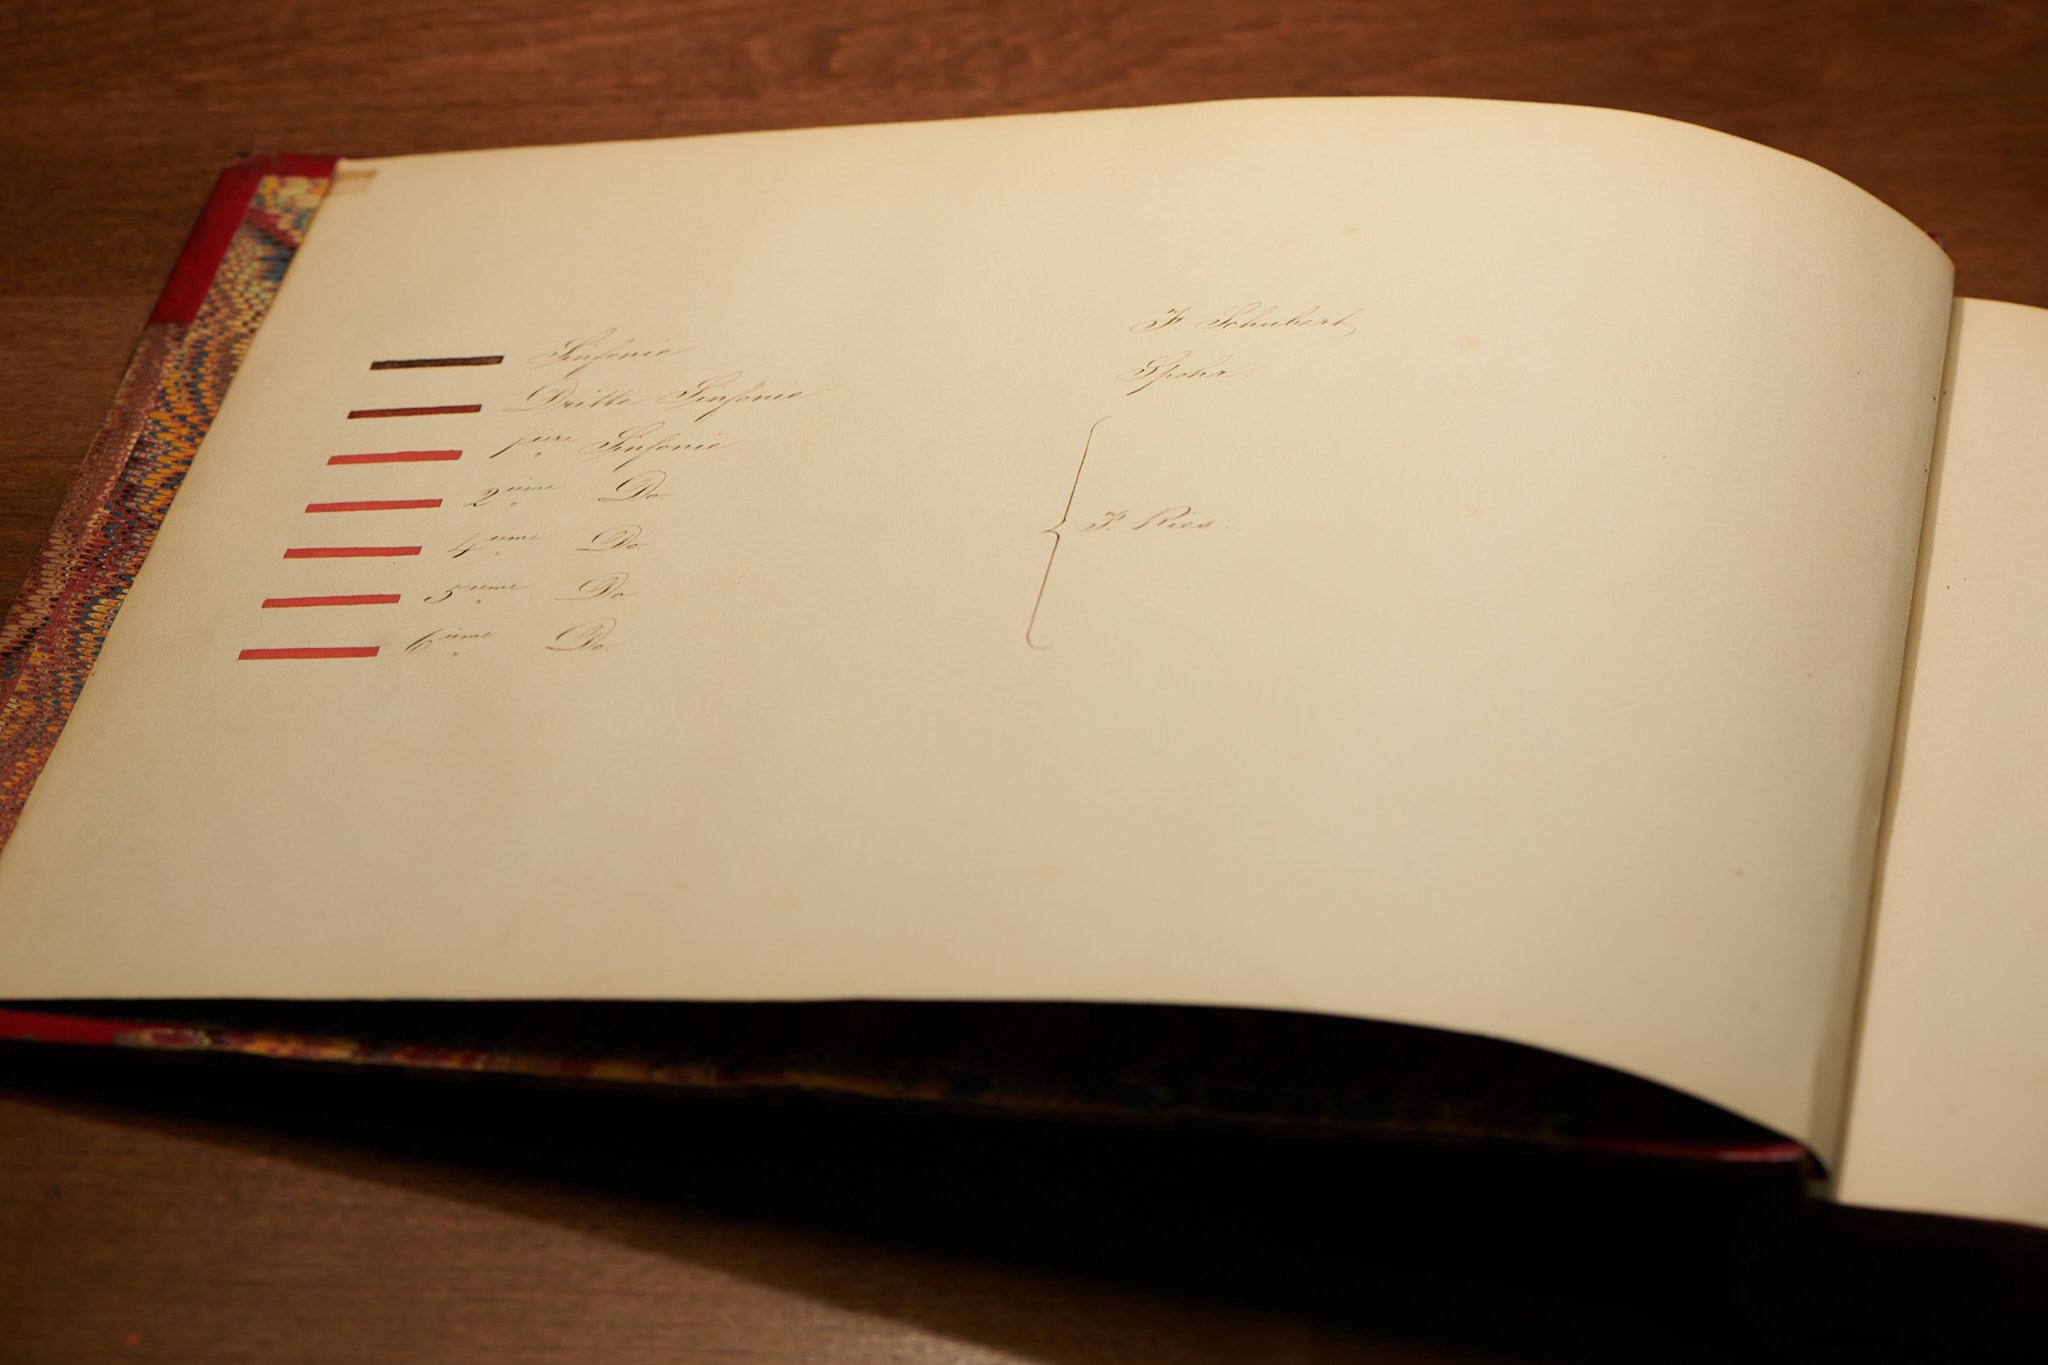 Sinfonie F. Schubert
Dritte Sinfonie Spohr.
1ière Sinfonie
2ième Do.
4ième Do. F. Ries.
5ième Do.
6ième Do.